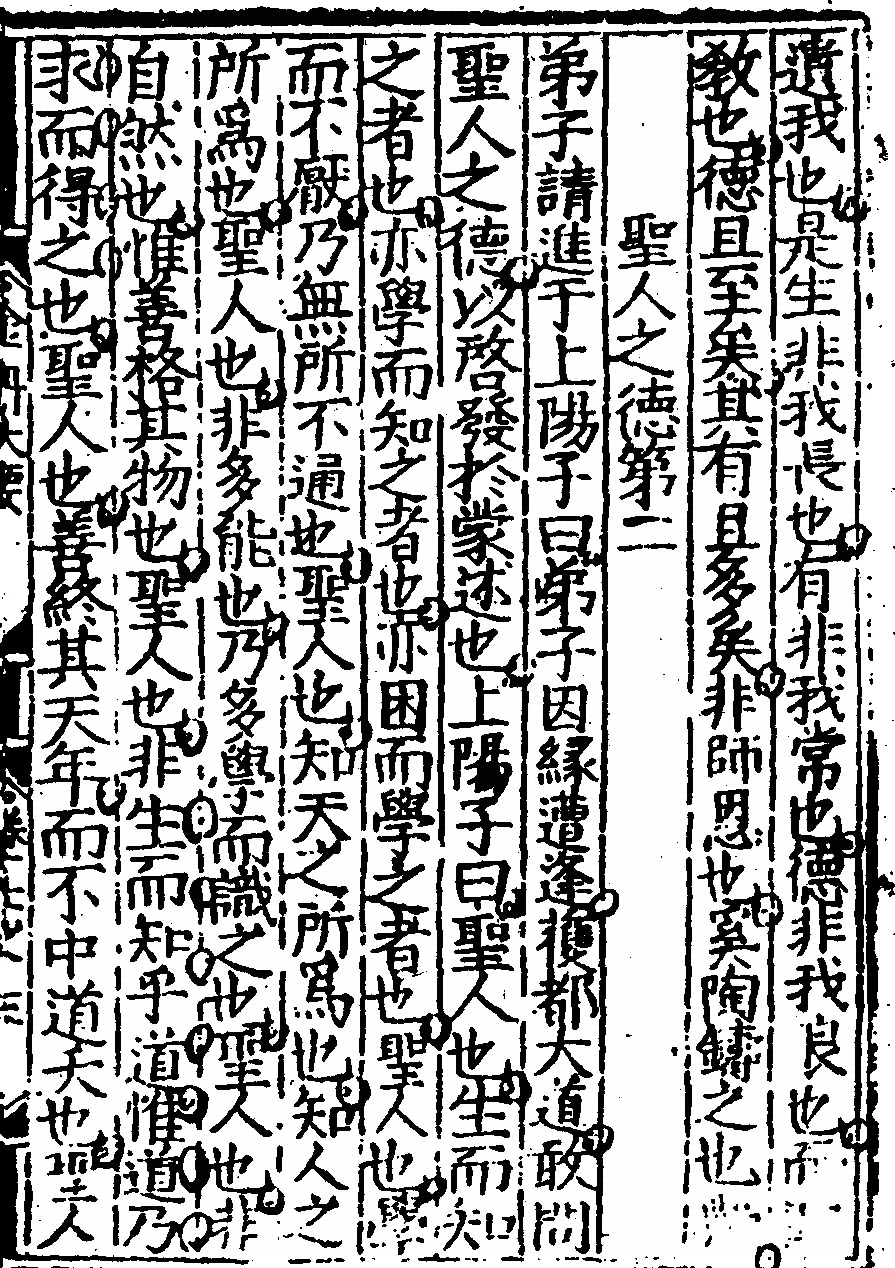 遺我也是生非我長也有非我常也德非我良也而
教也德且至矣其有且多矣非師恩也奚陶鑄之也
聖人之德第二
弟子請進于上陽子曰弟子因緣遭逢獲都大道敢問
聖人之德以啓發於蒙述也上陽子曰聖人也生而知
之者也亦學而知之者也亦困而學之者也聖人也學
而不厭乃無所不通也聖人也知天之所爲也知人之
所爲也聖人也非多能也乃多學而識之也聖人也非
自然也惟善格其物也聖人也非生而知乎道惟道乃
求而得之也聖人也善終其天年而不中道夭也聖人